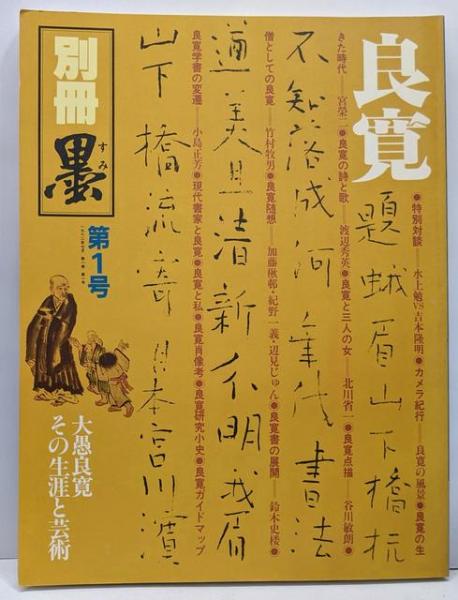 良寛
●特別対談──水上勉VS吉本隆明●カメラ紀行──良寛の風景●良寛の生
きた時代──宮榮二●良寛の詩と歌──渡辺秀英●良寛と三人の女──北川省一●良寛点描──谷川敏朗●
僧としての良寛──竹村牧男●良寛随想──加藤楸邨・紀野一義・辺見じゅん●良寛書の展開──鈴木史楼●
良寛学書の変遷──小島正芳●現代書家と良寛●良寛と私●良寛肖像考●良寛研究小史●良寛ガイドマップ
題蛾眉山下橋杭
不知落成何年代書法
遒美且清新分明我眉
山下橋流寄日本宮川濱
別冊
墨
すみ
第1号
大愚良寛
その生涯と芸術